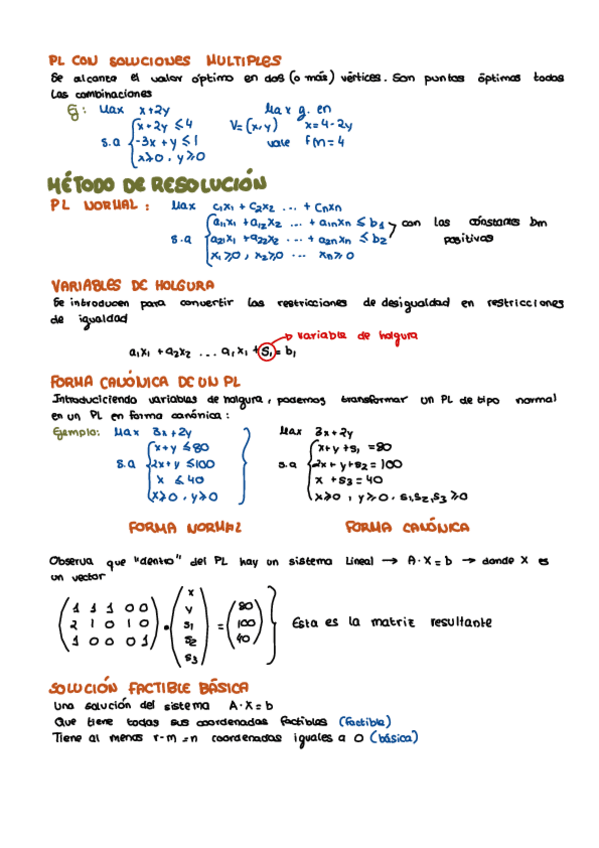 PL CON SOLUCIONES MULTIPLES
Se alcanza el valor óptimo en dos (o más) vértices. Son puntos óptimos todas
las combinaciones
Ej: Max x+2y Max g. en
x+2y ≤ 4 V=(x,y) x=4-2y
s.a -3x+y ≤ 1 vale FM=4
x≥0, y≥0
MÉTODO DE RESOLUCIÓN
PL NORMAL: Max c₁x₁ + c₂x₂ ... + cnxn
a₁₁x₁ + a₁₂x₂ ... + a₁nxn ≤ b₁ con las constantes bm
s.a a₂₁x₁ + a₂₂x₂ ... + a₂nxn ≤ b₂ positivas
x₁≥0, x₂≥0 ... xn≥0
VARIABLES DE HOLGURA
Se introducen para convertir las restricciones de desigualdad en restricciones
de igualdad
→ variable de holgura
a₁x₁ + a₂x₂ ... a₁x₁ + S₁ = b₁
FORMA CANÓNICA DE UN PL
Introduciciendo variables de holgura, podemos transformar un PL de tipo normal
en un PL en forma canónica:
Ejemplo: Max 3x+2y Max 3x+2y
x+y ≤ 80 x+y+s₁ = 80
s.a 2x+y ≤ 100 s.a 2x+y+s₂ = 100
x ≤ 40 x+s₃ = 40
x≥0, y≥0 x≥0, y≥0, s₁,s₂,s₃ ≥0
FORMA NORMAL FORMA CANÓNICA
Observa que "dentro" del PL hay un sistema lineal → A·X=b → donde X es
un vector
x
1 1 1 0 0 y 80
2 1 0 1 0 · s₁ = 100 Esta es la matriz resultante
1 0 0 0 1 s₂ 40
s₃
SOLUCIÓN FACTIBLE BÁSICA
Una solución del sistema A·X=b
Que tiene todas sus coordenadas factibles (factible)
Tiene al menos r-m=n coordenadas iguales a 0 (básica)